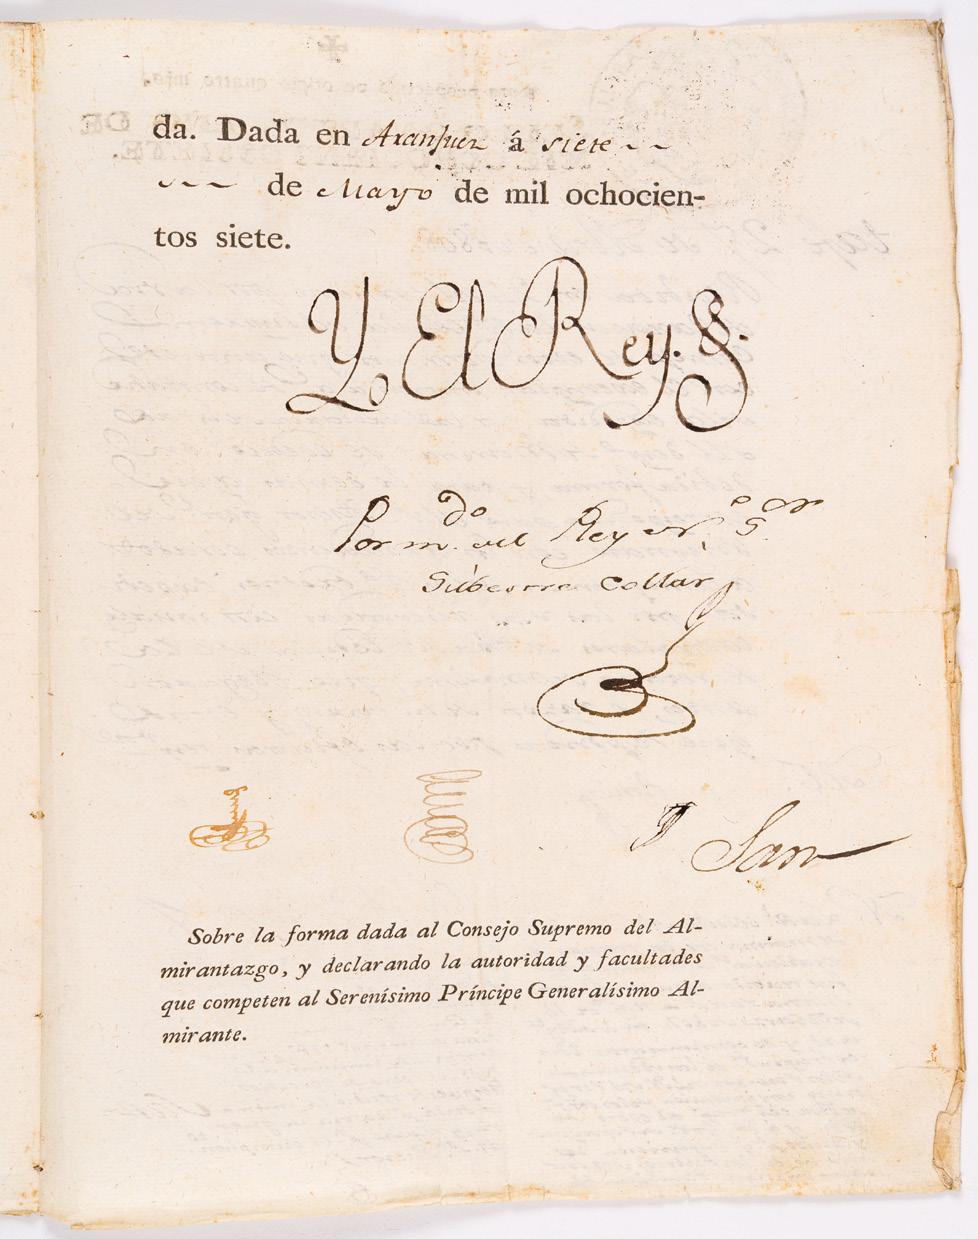 da. Dada en Aranjuez á siete
de Mayo de mil ochocien-
tos siete.
Yo El Rey.
Por m.do del Rey nr̃o S.or
Silvestre Collar
Sobre la forma dada al Consejo Supremo del Al-
mirantazgo, y declarando la autoridad y facultades
que competen al Serenísimo Príncipe Generalísimo Al-
mirante.